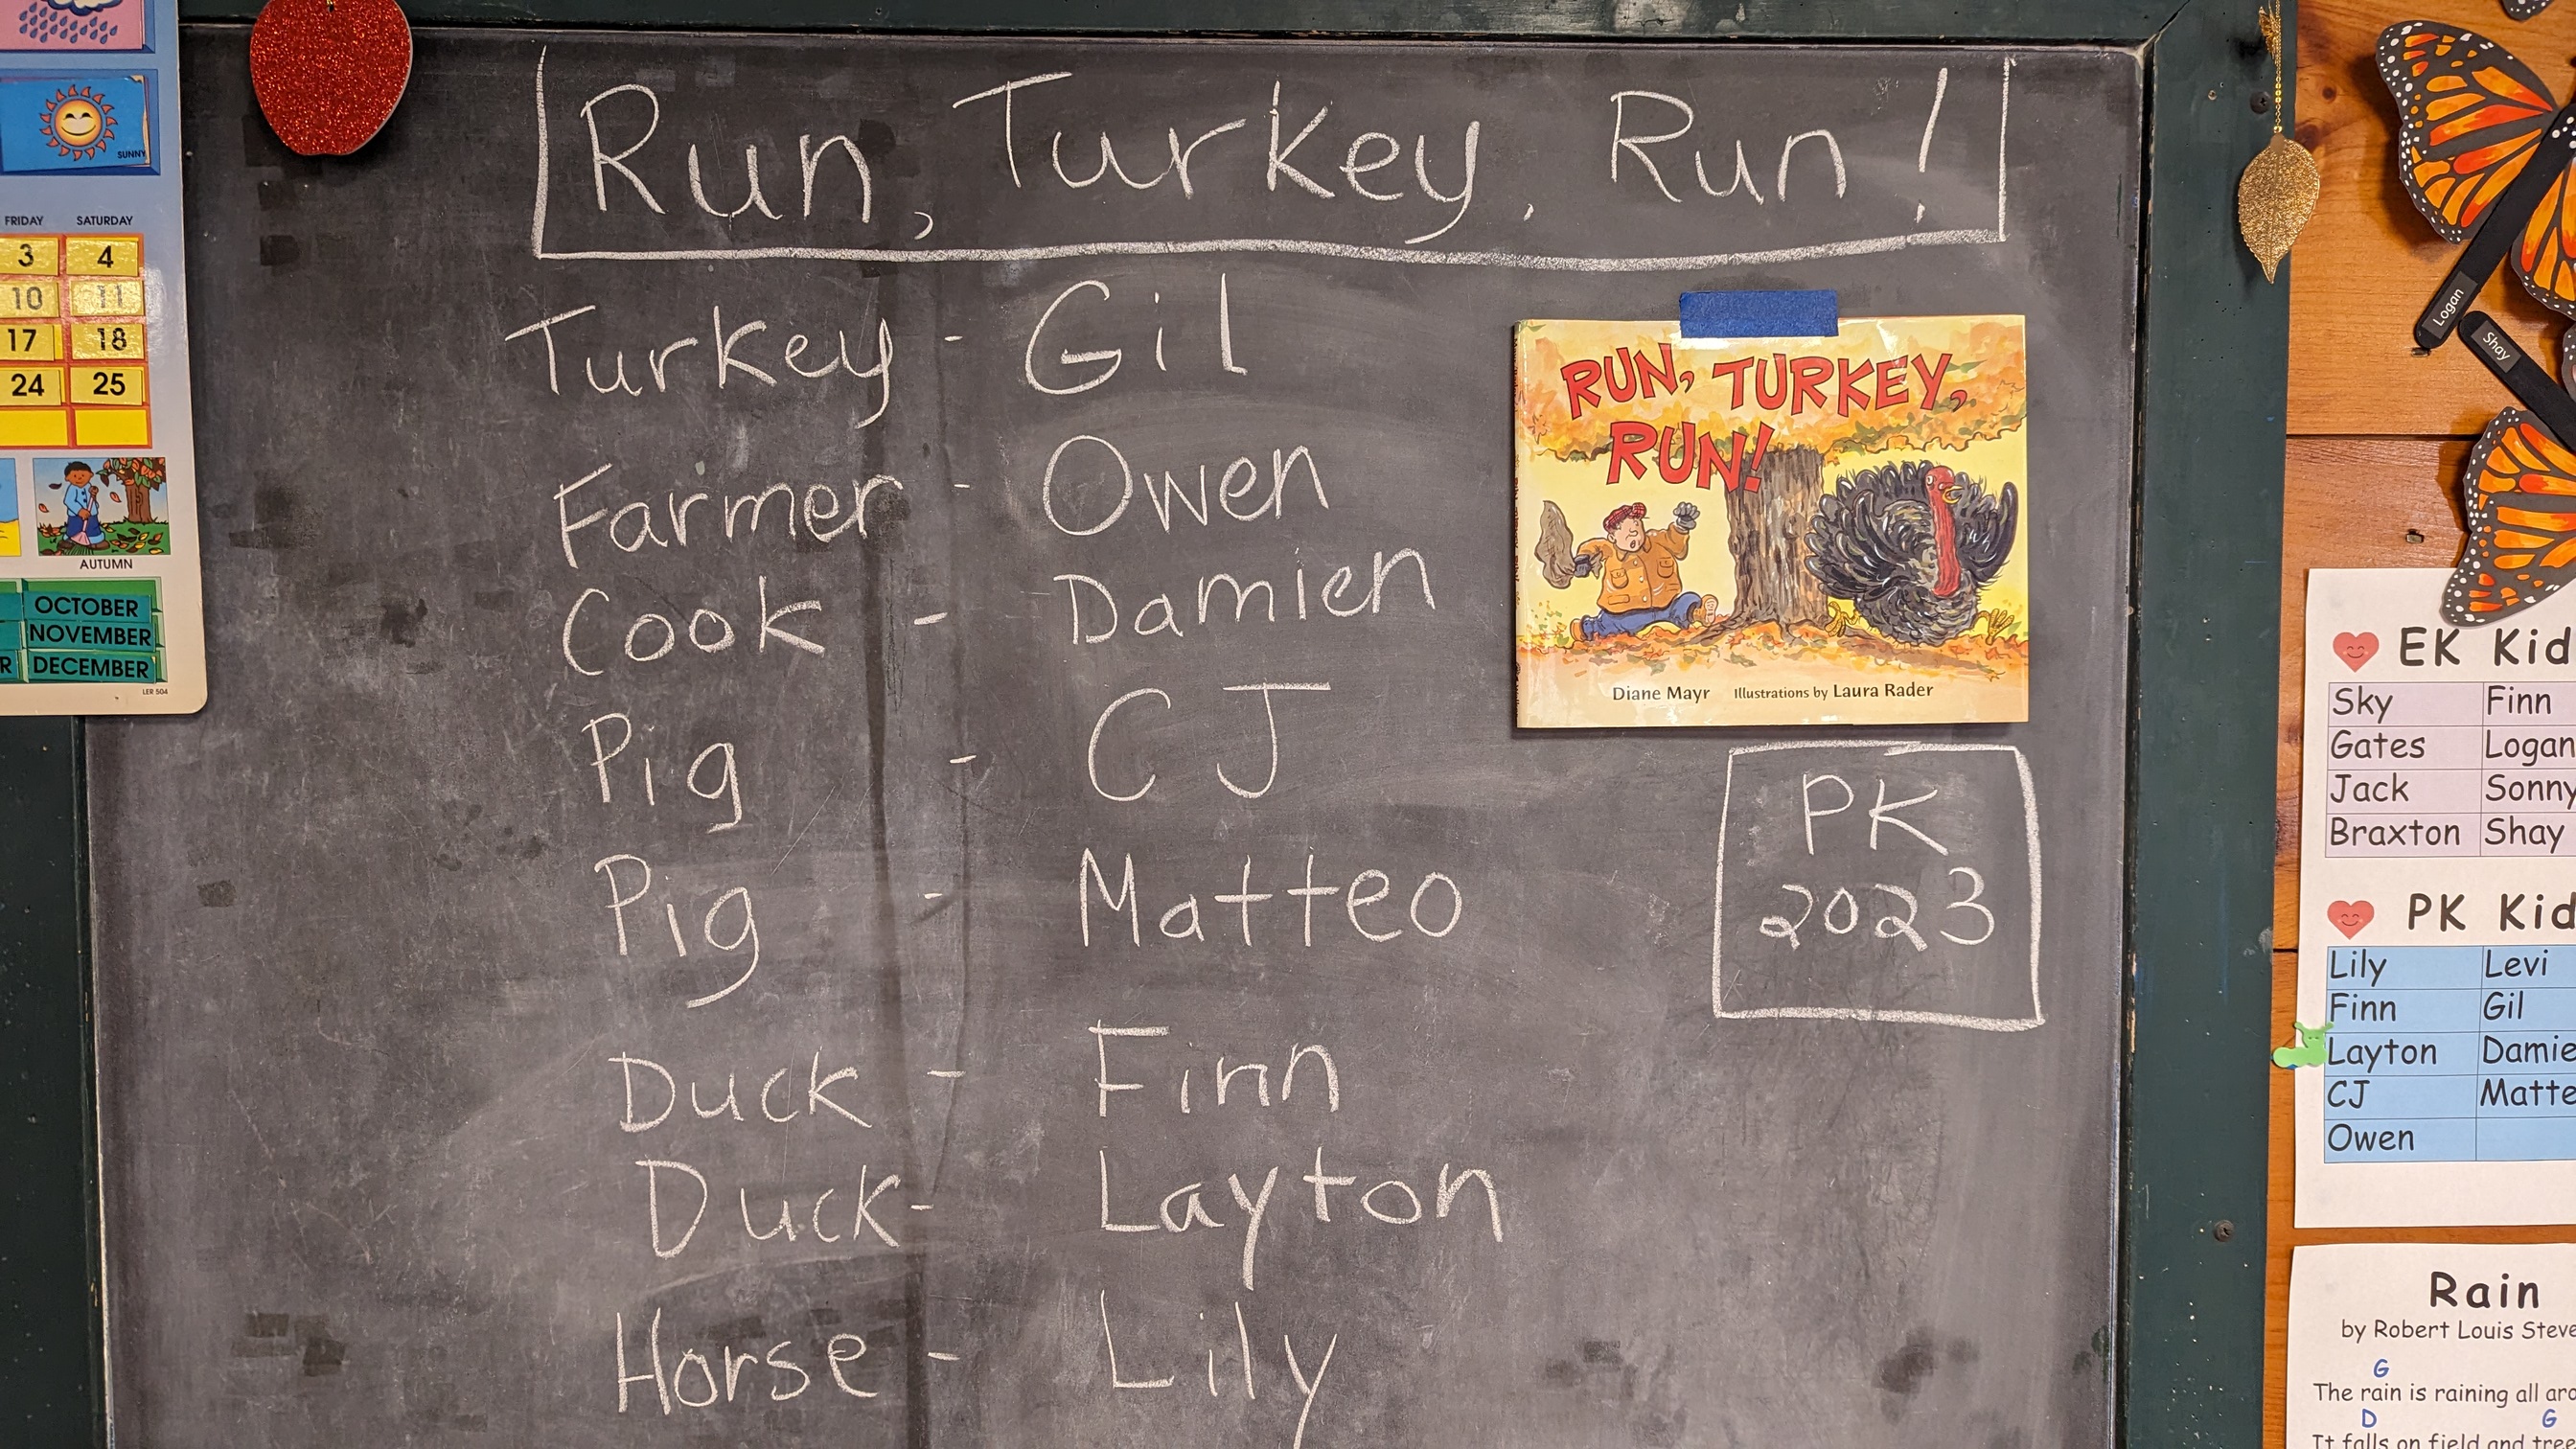 Run, Turkey, Run!
Turkey - Gil
Farmer - Owen
Cook - Damien
Pig - CJ
Pig - Matteo
Duck - Finn
Duck - Layton
Horse - Lily
RUN, TURKEY,
RUN!
Diane Mayr Illustrations by Laura Rader
PK
2023
SUNNY
FRIDAY SATURDAY
3 4
10 11
17 18
24 25
AUTUMN
OCTOBER
NOVEMBER
R DECEMBER
LER 504
Logan
Shay
EK Kid
Sky Finn
Gates Logan
Jack Sonny
Braxton Shay
PK Kid
Lily Levi
Finn Gil
Layton Damie
CJ Matte
Owen
Rain
by Robert Louis Steve
G
The rain is raining all aro
D G
It falls on field and tree